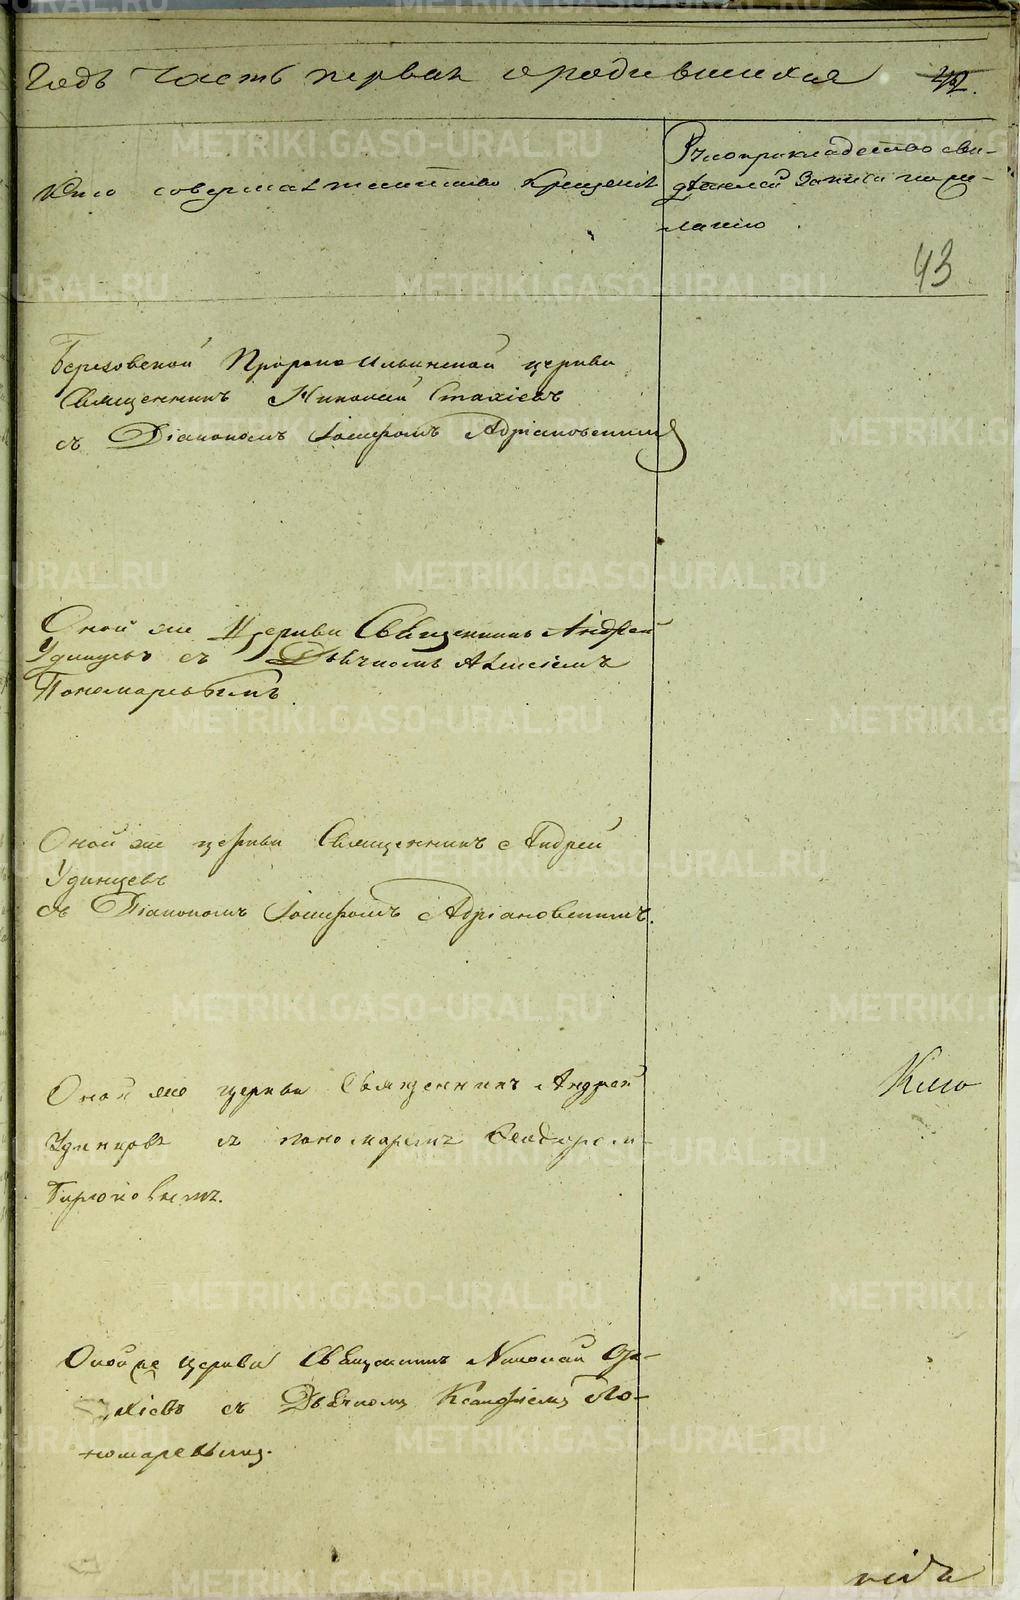 Годъ Часть первая о родившихся 42.
Кто совершалъ таинство крещенія
Рукоприкладство сви-
дѣтелей записи по же-
ланію
43
Березовской Пророко Ильинской церкви
Священникъ Николай Стахіевъ
съ Діакономъ Іосифомъ Адріановскимъ
Оной же Церкви Священникъ Андрей
Удинцевъ съ Дьячкомъ Алексіемъ
Пономаревымъ
Оной же церкви Священникъ Андрей
Удинцевъ
съ Діакономъ Іосифомъ Адріановскимъ.
Оной же церкви Священникъ Андрей
Удинцовъ съ пономаремъ
Бирюковымъ.
Оной же церкви Священникъ Николай Ста-
хіевъ съ Дьячкомъ По-
номаревымъ.
METRIKI.GASO-URAL.RU